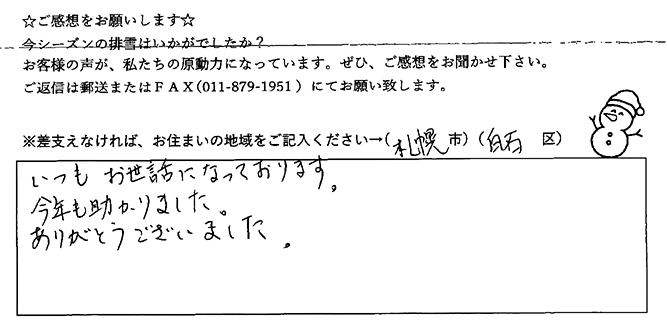 ☆ご感想をお願いします☆
今シーズンの排雪はいかがでしたか？
お客様の声が、私たちの原動力になっています。ぜひ、ご感想をお聞かせ下さい。
ご返信は郵送またはＦＡＸ(011-879-1951）にてお願い致します。
※差支えなければ、お住まいの地域をご記入ください→( 札幌 市）( 白石 区）
いつも お世話になっております。
今年も助かりました。
ありがとうございました。